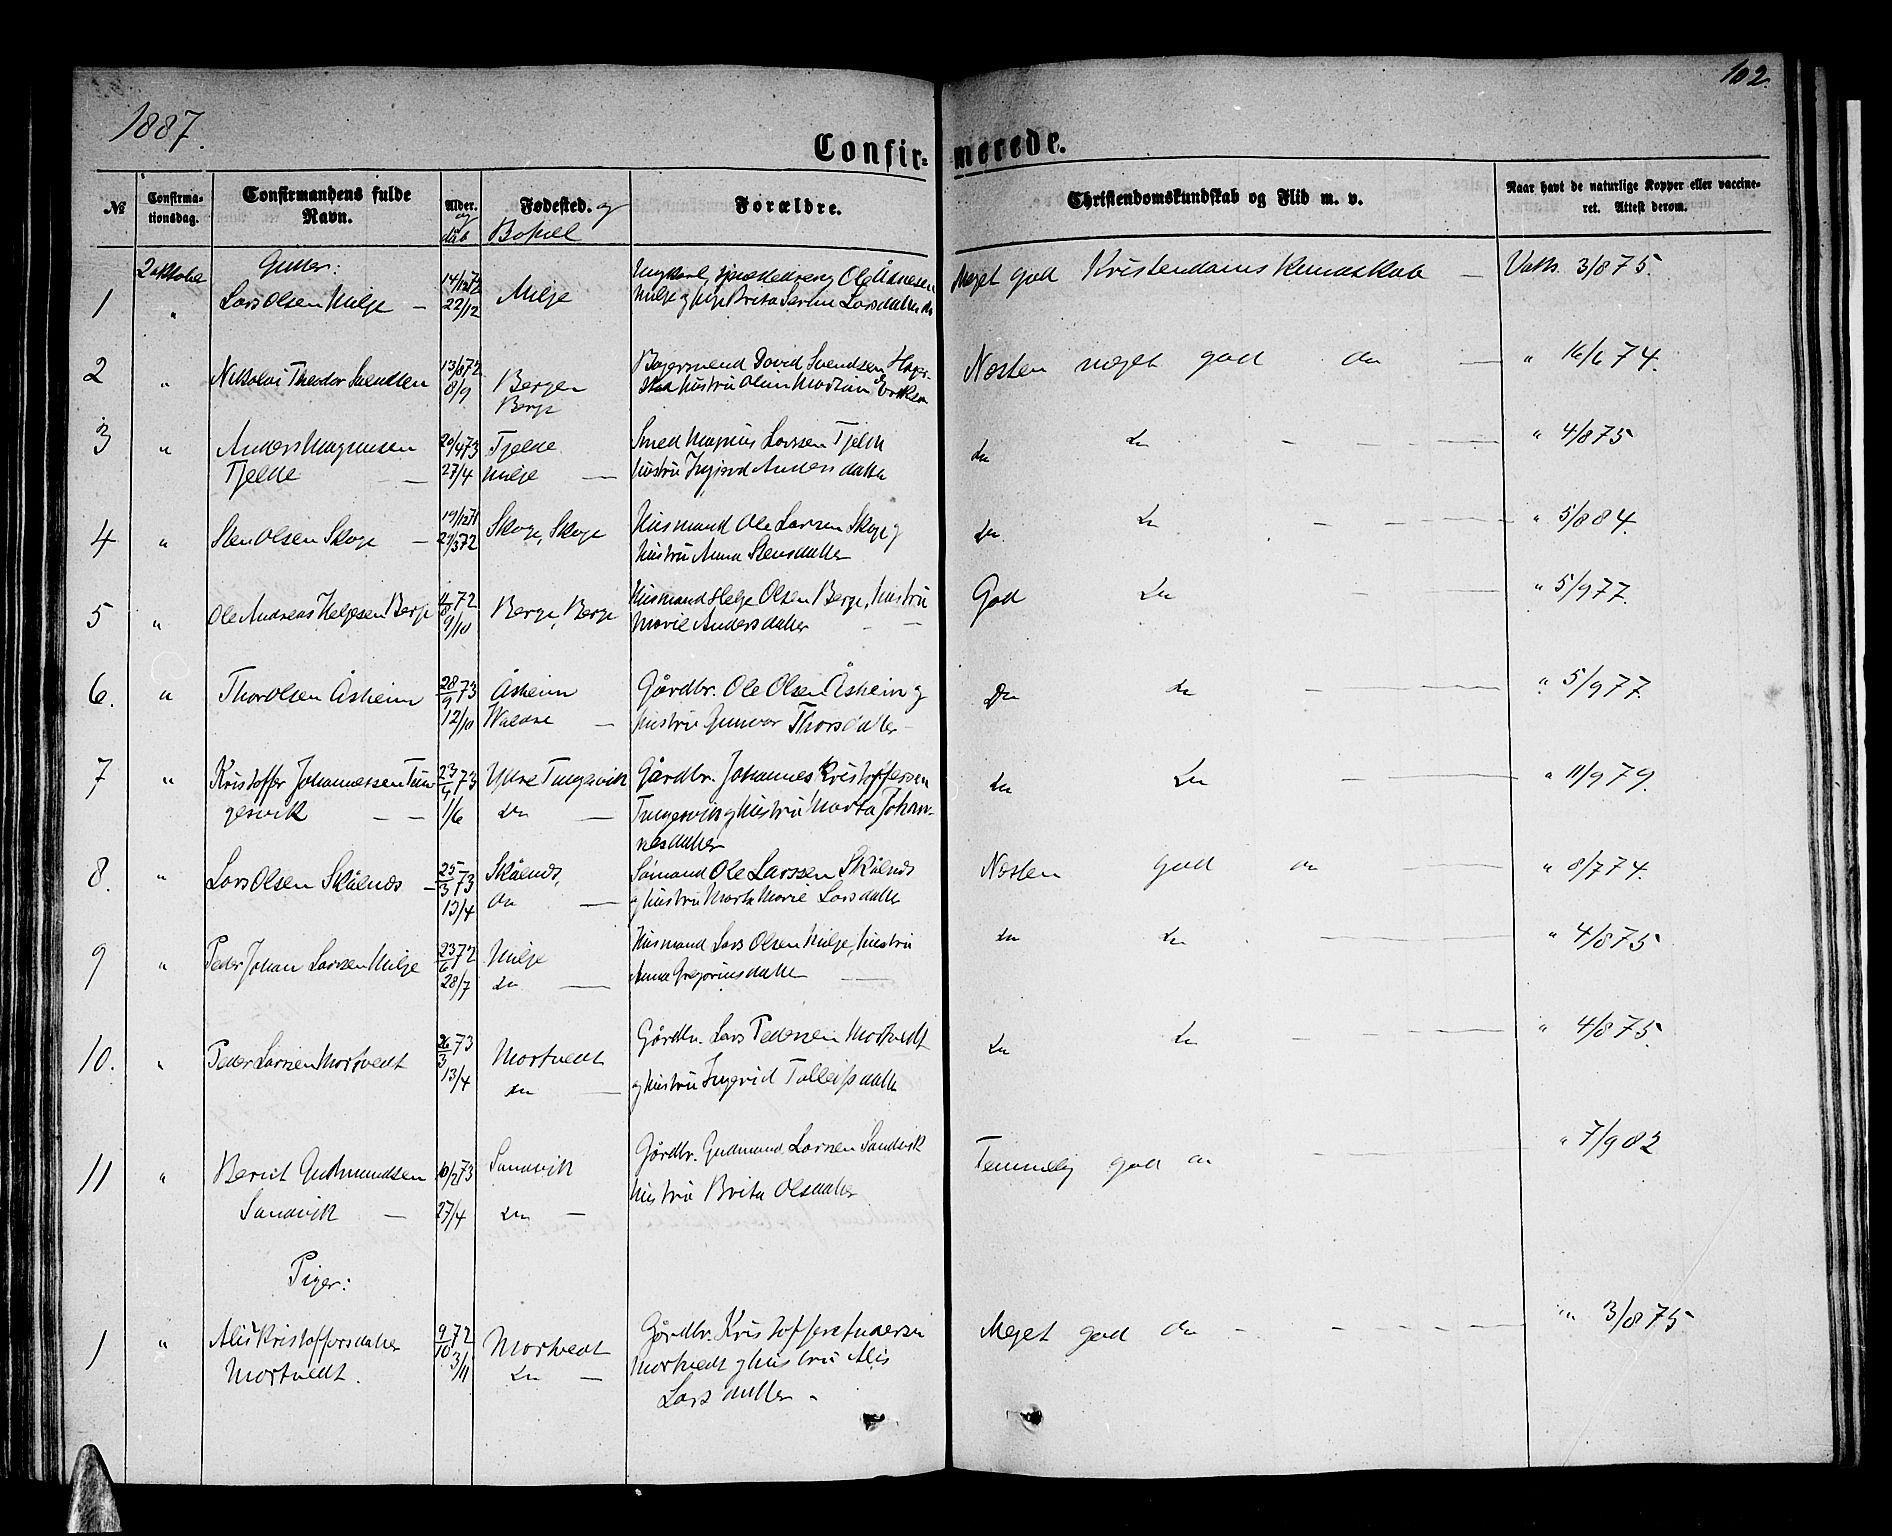 102.
1887.
Confir- merede.
№
Confirma-
tionsdag.
Confirmandens fulde
Navn.
Alder.
og
dåb
Fødested. og
Bopæl
Forældre.
Christendomskundskab og Flid m. v.
Naar havt de naturlige Kopper eller vaccine-
ret. Attest derom.
2 oktober Gutter:
1 " Lars Olsen Milje —
14/12 72
22/12
Milje
Ole Åmesen
Milje og Brita Serine Larsdatter
Meget god Kristendomskundskab — Vakc. 3/8 75.
2 " Nikolai Theodor Svendsen
13/8 72
8/9
Bergen
Berge
David Svendsen
hustru
Næsten meget god do — " 16/6 74.
3 " Anders Magnusen
Tjelde —
20/4 73
27/4
Tjelde
Milje —
Smed Magnus Larssen Tjelde
hustru Ingjerd Andersdatter
do do — — — — " 4/8 75
4 " Sten Olsen Skoge —
19/12 71
29/3 72
Skoge, Skoge
Husmand Ole Larsen Skoge og
hustru Anna Stensdatter
do do — — — — " 5/8 84.
5 " Ole Andreas Helgesen Berge
11/8 72
9/10
Berge, Berge
Husmand Helge Olsen Berge, hustru
Marie Andersdatter — —
God do — — — — " 5/9 77.
6. " Thor Olsen Åsheim
28/9 73
12/10
Åsheim
—
Gårdbr. Ole Olsen Åsheim og
hustru Gunvor Thorsdatter —
do do — — — " 5/9 77.
7 " Kristoffer Johannessen Tun-
gesvik — —
23/4 73
1/6
Ytre Tungesvik
do —
Gårdbr. Johannes Kristoffersen
Tungesvik og hustru Marta Johan-
nesdatter
do do — — — " 11/9 79.
8. " Lars Olsen Skålnes —
25/3 73
13/4
Skålnes,
do —
Sømand Ole Larssen Skålnes
og hustru Marta Marie Larsdatter
Næsten god do — — " 8/7 74.
9 " Peder Johan Larssen Milje
23/6 72
28/7
Milje
do —
Husmand Lars Olsen Milje, hustru
Anna Gregoriusdatter —
do do — — — — " 4/8 75
10. " Peder Larssen Mortvedt
26/3 73
13/4
Mortvedt
do —
Gårdbr. Lars Pedersen Mortvedt
og hustru Ingrid Tolleifsdatter
do do — — — " 4/8 75.
11 " Berut Gudmundsen
Sandvik —
10/2 73
27/4
Sandvik
do —
Gårdbr. Gudmund Larssen Sandvik
hustru Brita Olsdatter
Temmelig god do — — — — " 7/9 82
Piger:
1 " Alis Kristoffersdatter
Mortvedt.
9/10 72
3/11
Mortvedt
do —
Gårdbr. Kristoffer Andersen
Mortvedt og hustru Alis
Larsdatter.
Meget god do — — — — — " 3/8 75